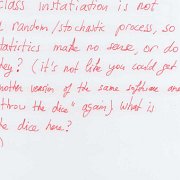 class instatiation is not
random/stochastic process, so
tatistics make no sense, or do
they? (it's not like you could get
nother version of the same software and
"throw the dice" again) What is
e dice here?